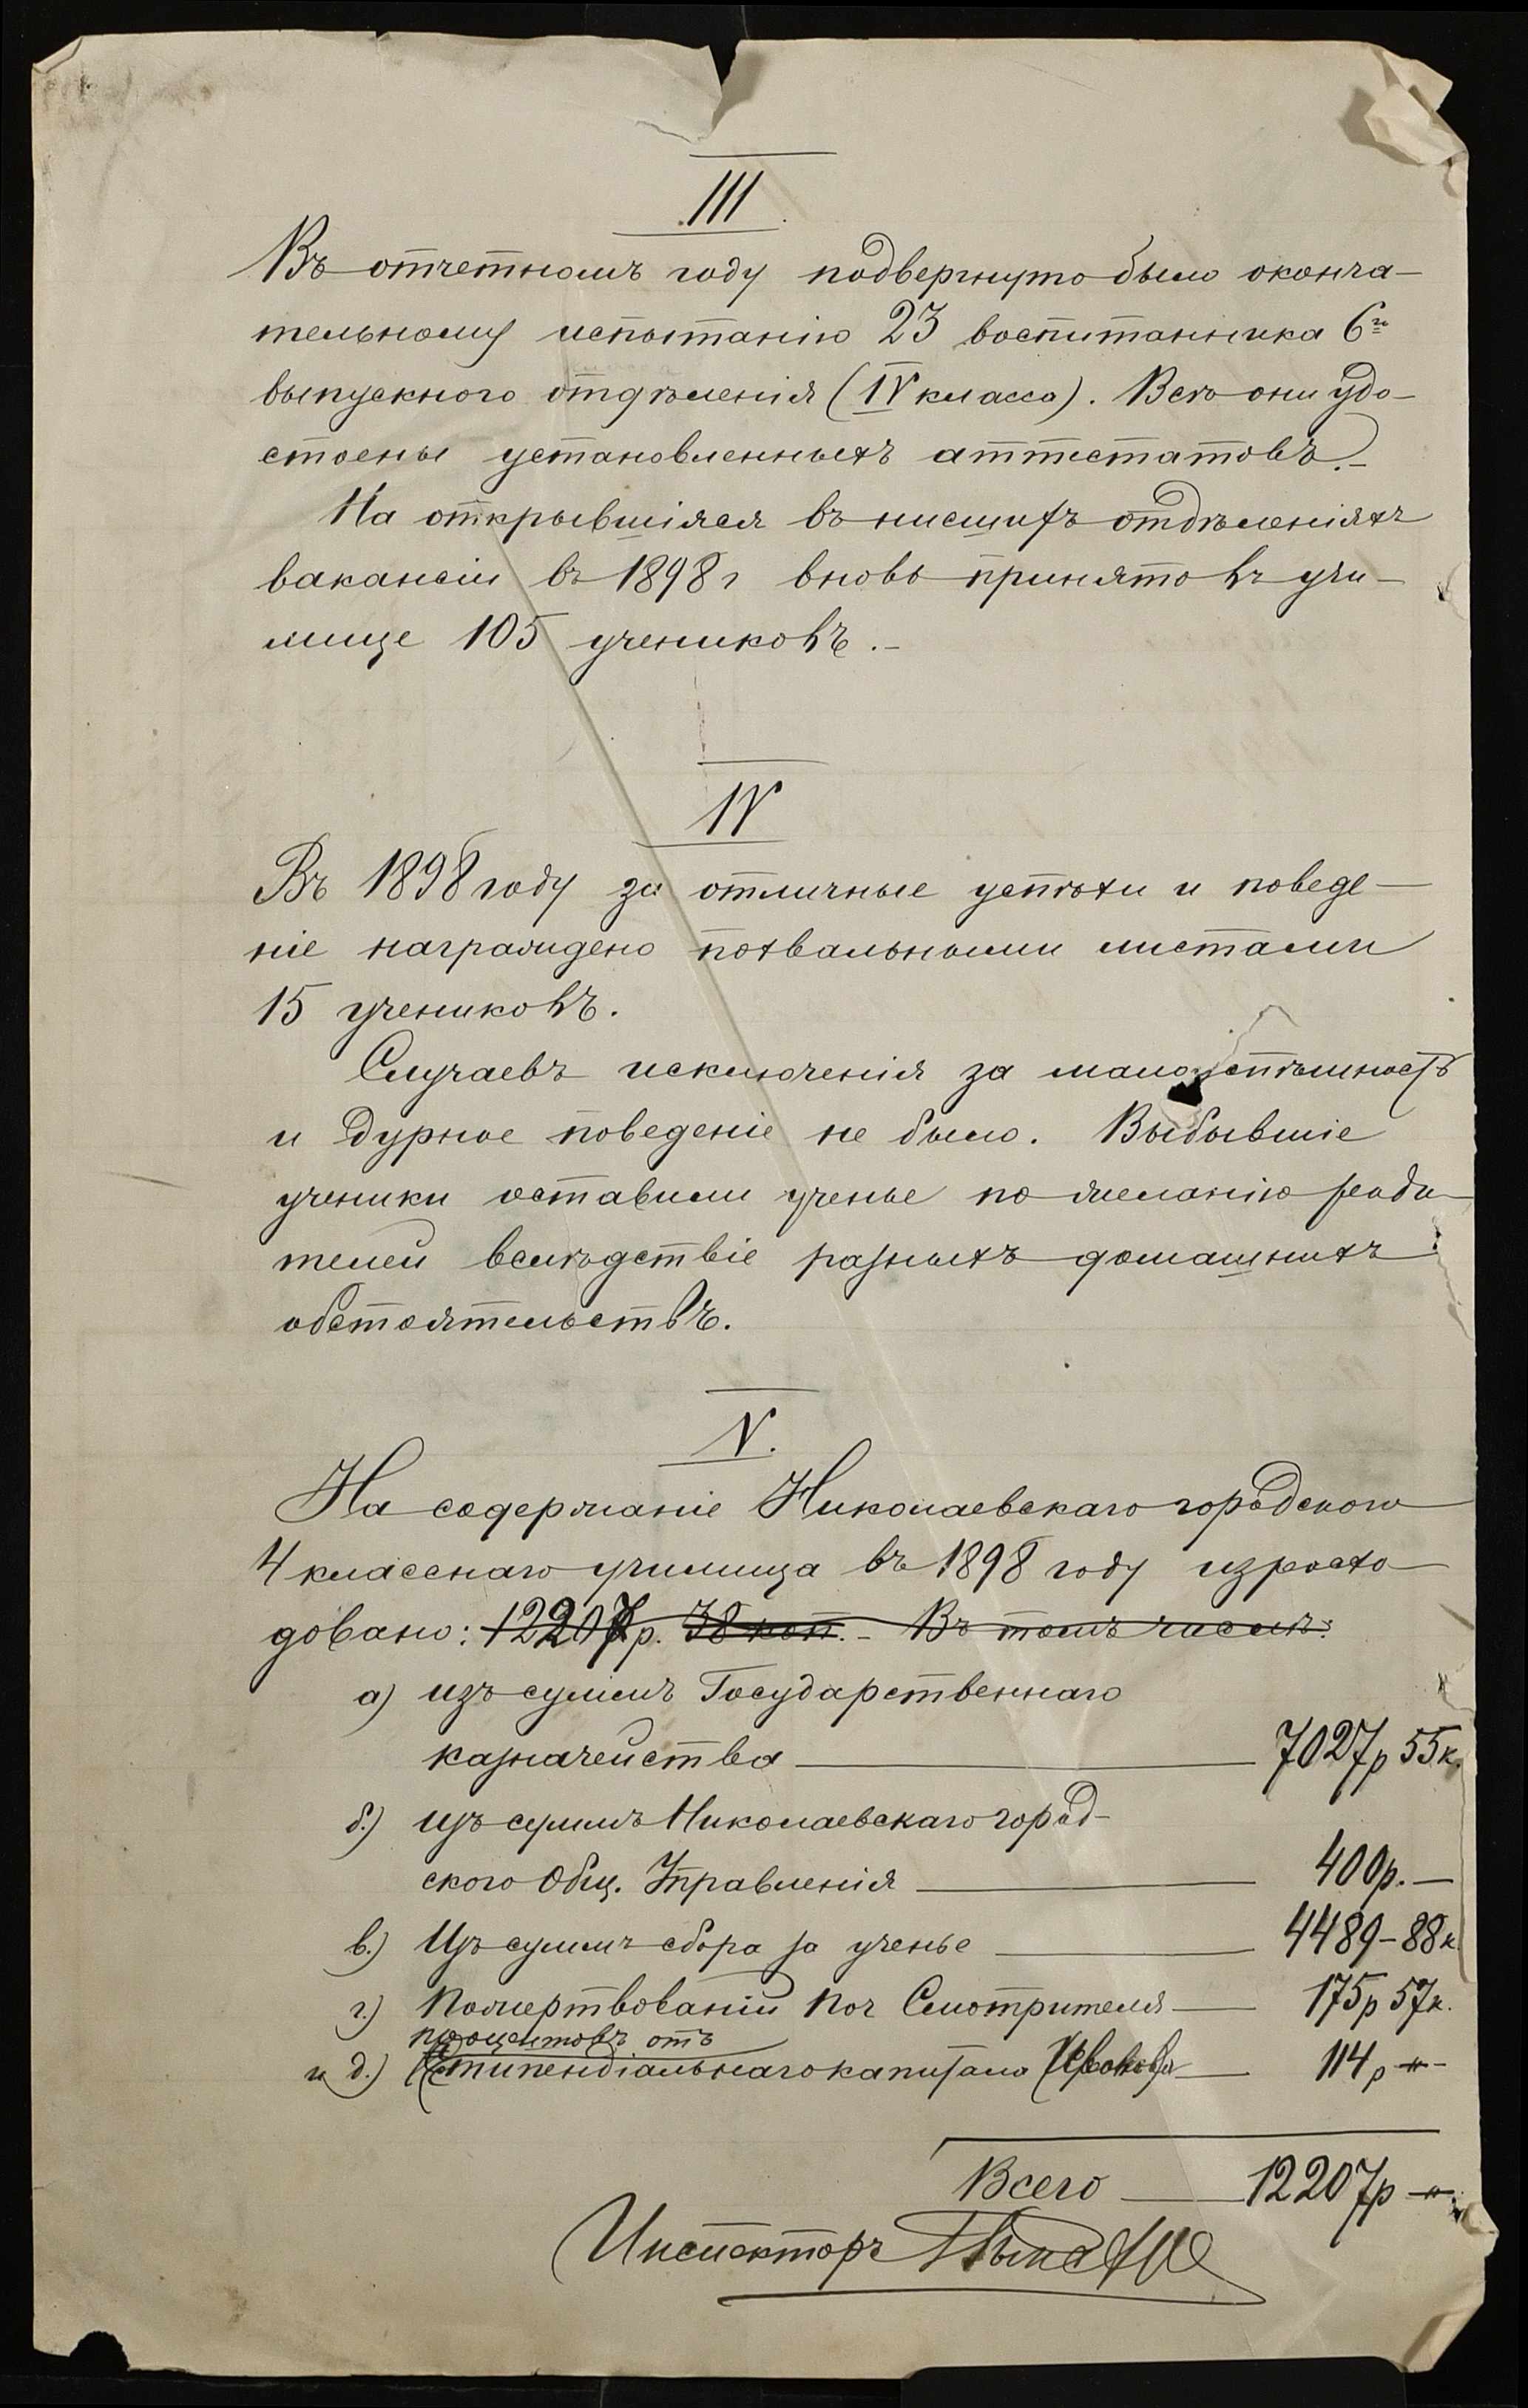 III
Въ отчетномъ году подвергнуто было оконча-
тельному испытанію 23 воспитанника 6го
выпускного отдѣленія (IV класса). Всѣ они удо-
стоены установленныхъ аттестатовъ.-
На открывшіяся въ низшихъ отдѣленіяхъ
вакансіи въ 1898 г вновь принято въ учи-
лище 105 учениковъ.-
IV
Въ 1898 году за отличные успѣхи и поведе-
ніе награждено похвальными листами
15 учениковъ.
Случаевъ исключенія за малоуспѣшность
и дурное поведеніе не было. Выбывшіе
ученики оставили ученье по желанію роди-
телей вслѣдствіе разныхъ домашнихъ
обстоятельствъ.
V.
На содержаніе Николаевскаго городского
4 класснаго училища въ 1898 году израсхо-
довано: 12207 р. 38 коп. - Въ томъ числѣ:
а) изъ суммъ Государственнаго
казначейства — 7027 р 55 к.
б.) изъ суммъ Николаевскаго город-
ского Общ. Управленія — 400 р. —
в.) Изъ суммъ сбора за ученье — 4489 - 88 к.
г.) Пожертвованій Поч Смотрителя — 175 р 57 к.
процентовъ отъ
и д.) Стипендіальнаго капитала — 114 р -"-
Всего — 12207 р -"-
Инспекторъ